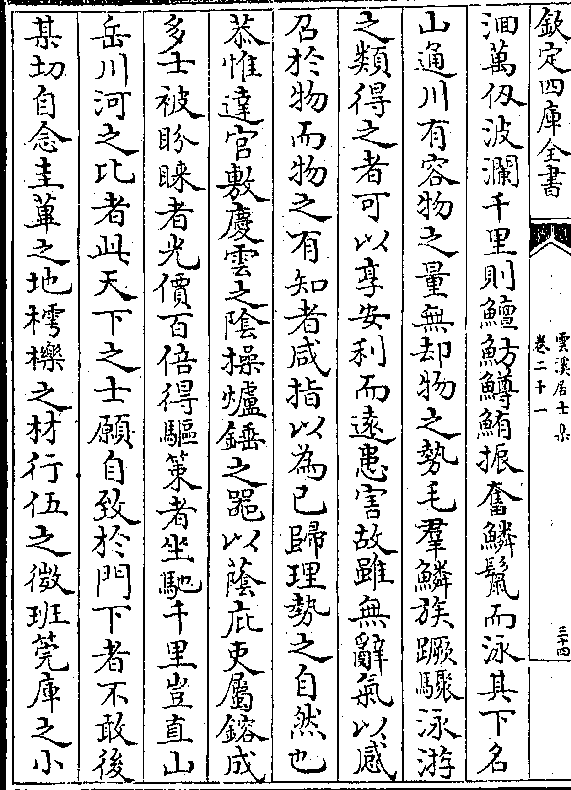 欽定四庫全書
雲溪居士集
卷二十一
三十四
洄萬仭波瀾千里則鱣魴鱒鮪振奮鱗鬛而泳其下名
山通川有容物之量無却物之勢毛羣鱗族蹶驟泳游
之類得之者可以享安利而逺患害故雖無辭氣以感
召於物而物之有知者咸指以為已歸理勢之自然也
恭惟達官敷慶雲之陰操爐錘之噐以蔭庇吏屬鎔成
多士被盼睞者光價百倍得驅策者坐馳千里豈直山
岳川河之比者此天下之士願自致於門下者不敢後
某切自念圭蓽之地樗櫟之材行伍之微班筦庫之小